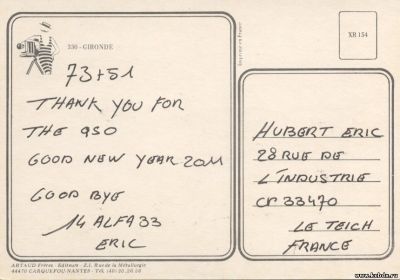 330 - GIRONDE
Imprimé en France
XR 154
73+51
THANK YOU FOR
THE QSO
GOOD NEW YEAR 2011
GOOD BYE
14 ALFA 33
ERIC
HUBERT ERIC
28 RUE DE
L'INDUSTRIE
CP 33470
LE TEICH
FRANCE
ARTAUD Frères - Editeurs - Z.I. Rue de la Métallurgie
44470 CARQUEFOU-NANTES
www.kabda.ru